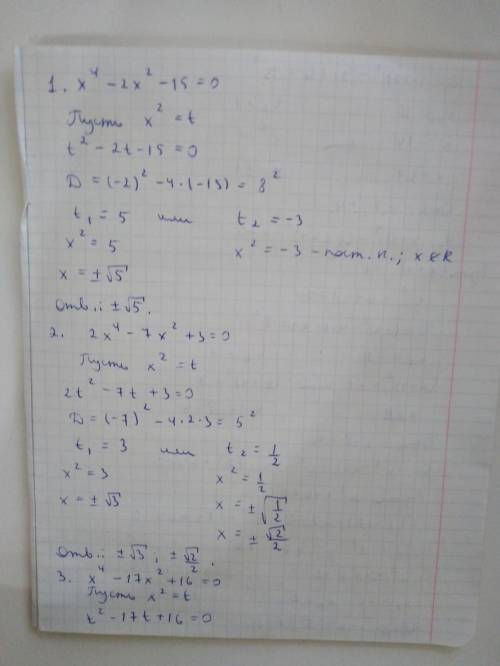 1. x⁴ - 2x² - 15 = 0
Пусть x² = t
t² - 2t - 15 = 0
D = (-2)² - 4·(-15) = 8²
t₁ = 5 или t₂ = -3
x² = 5 x² = -3 - пост. к.; x ∉ R
x = ±√5
Отв.: ±√5.
2. 2x⁴ - 7x² + 3 = 0
Пусть x² = t
2t² - 7t + 3 = 0
D = (-7)² - 4·2·3 = 5²
t₁ = 3 или t₂ = 1/2
x² = 3 x² = 1/2
x = ±√3 x = ±√(1/2)
x = ±√2/2
Отв.: ±√3; ±√2/2.
3. x⁴ - 17x² + 16 = 0
Пусть x² = t
t² - 17t + 16 = 0